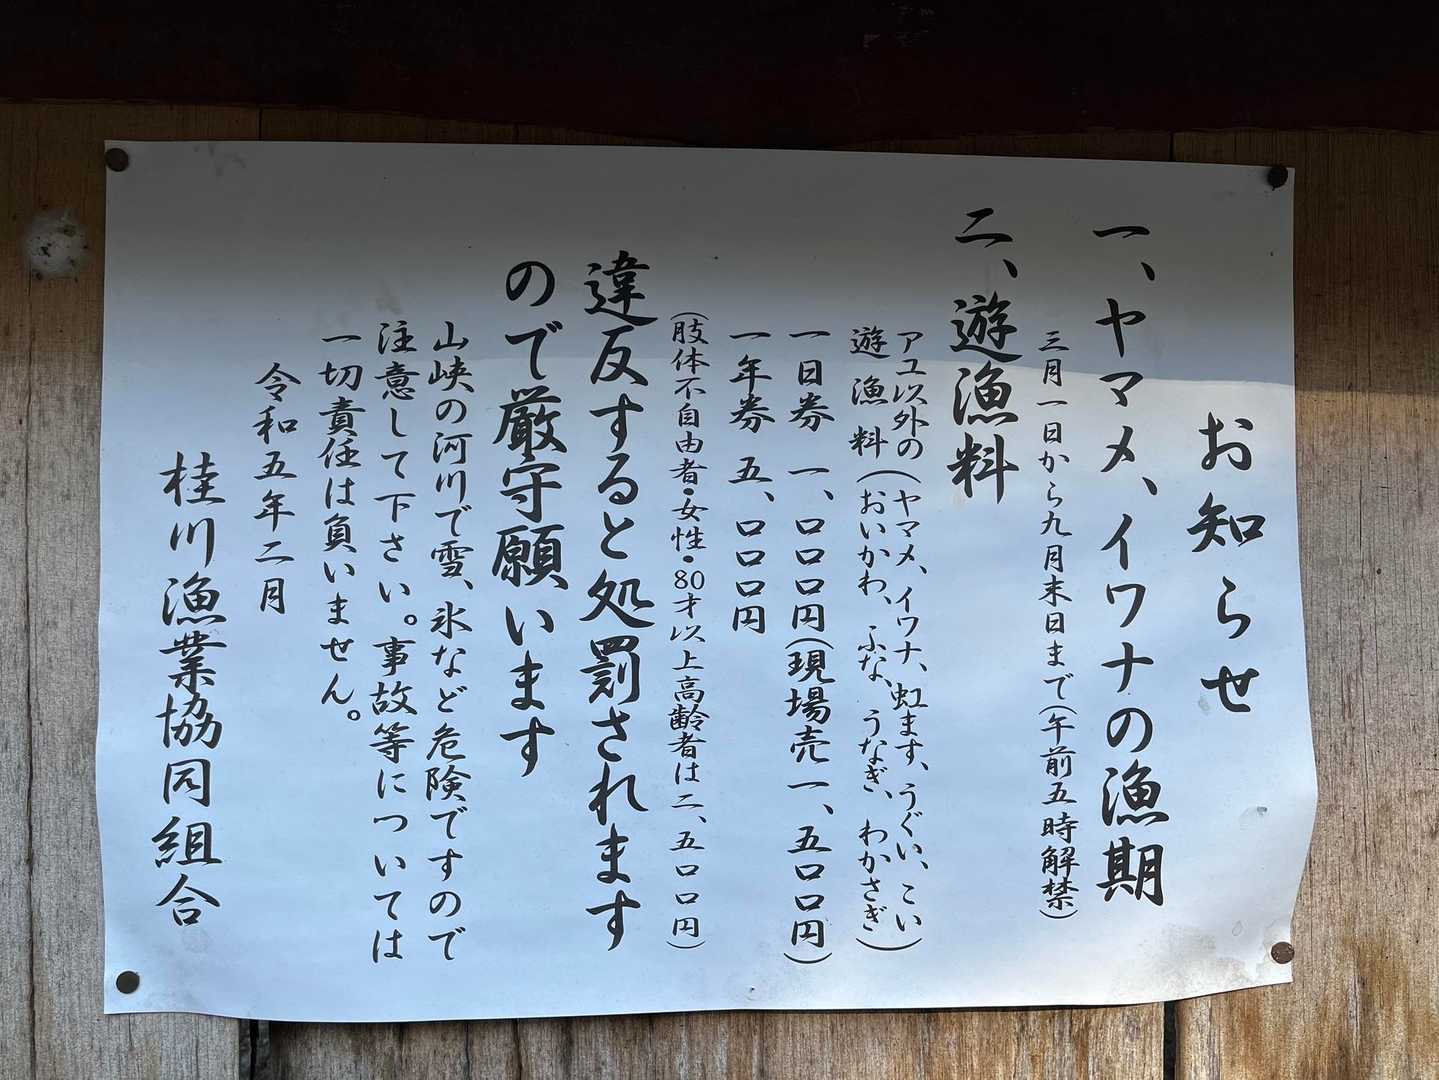 お知らせ
一、ヤマメ、イワナの漁期
三月一日から九月末日まで(午前五時解禁)
二、遊漁料
アユ以外の(ヤマメ、イワナ、虹ます、うぐい、こい)
遊漁料(おいかわ、ふな、うなぎ、わかさぎ)
一日券 一、〇〇〇円(現場売一、五〇〇円)
一年券 五、〇〇〇円
(肢体不自由者・女性・80才以上高齢者は二、五〇〇円)
違反すると処罰されます
ので厳守願います
山峡の河川で雪、氷など危険ですので
注意して下さい。事故等については
一切責任は負いません。
令和五年二月
桂川漁業協同組合